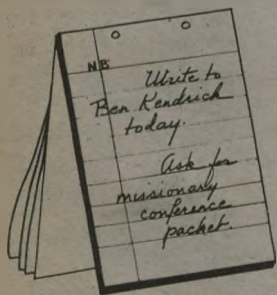 N.B.
Write to
Ben Kendrick
today.
Ask for
missionary
conference
packet.